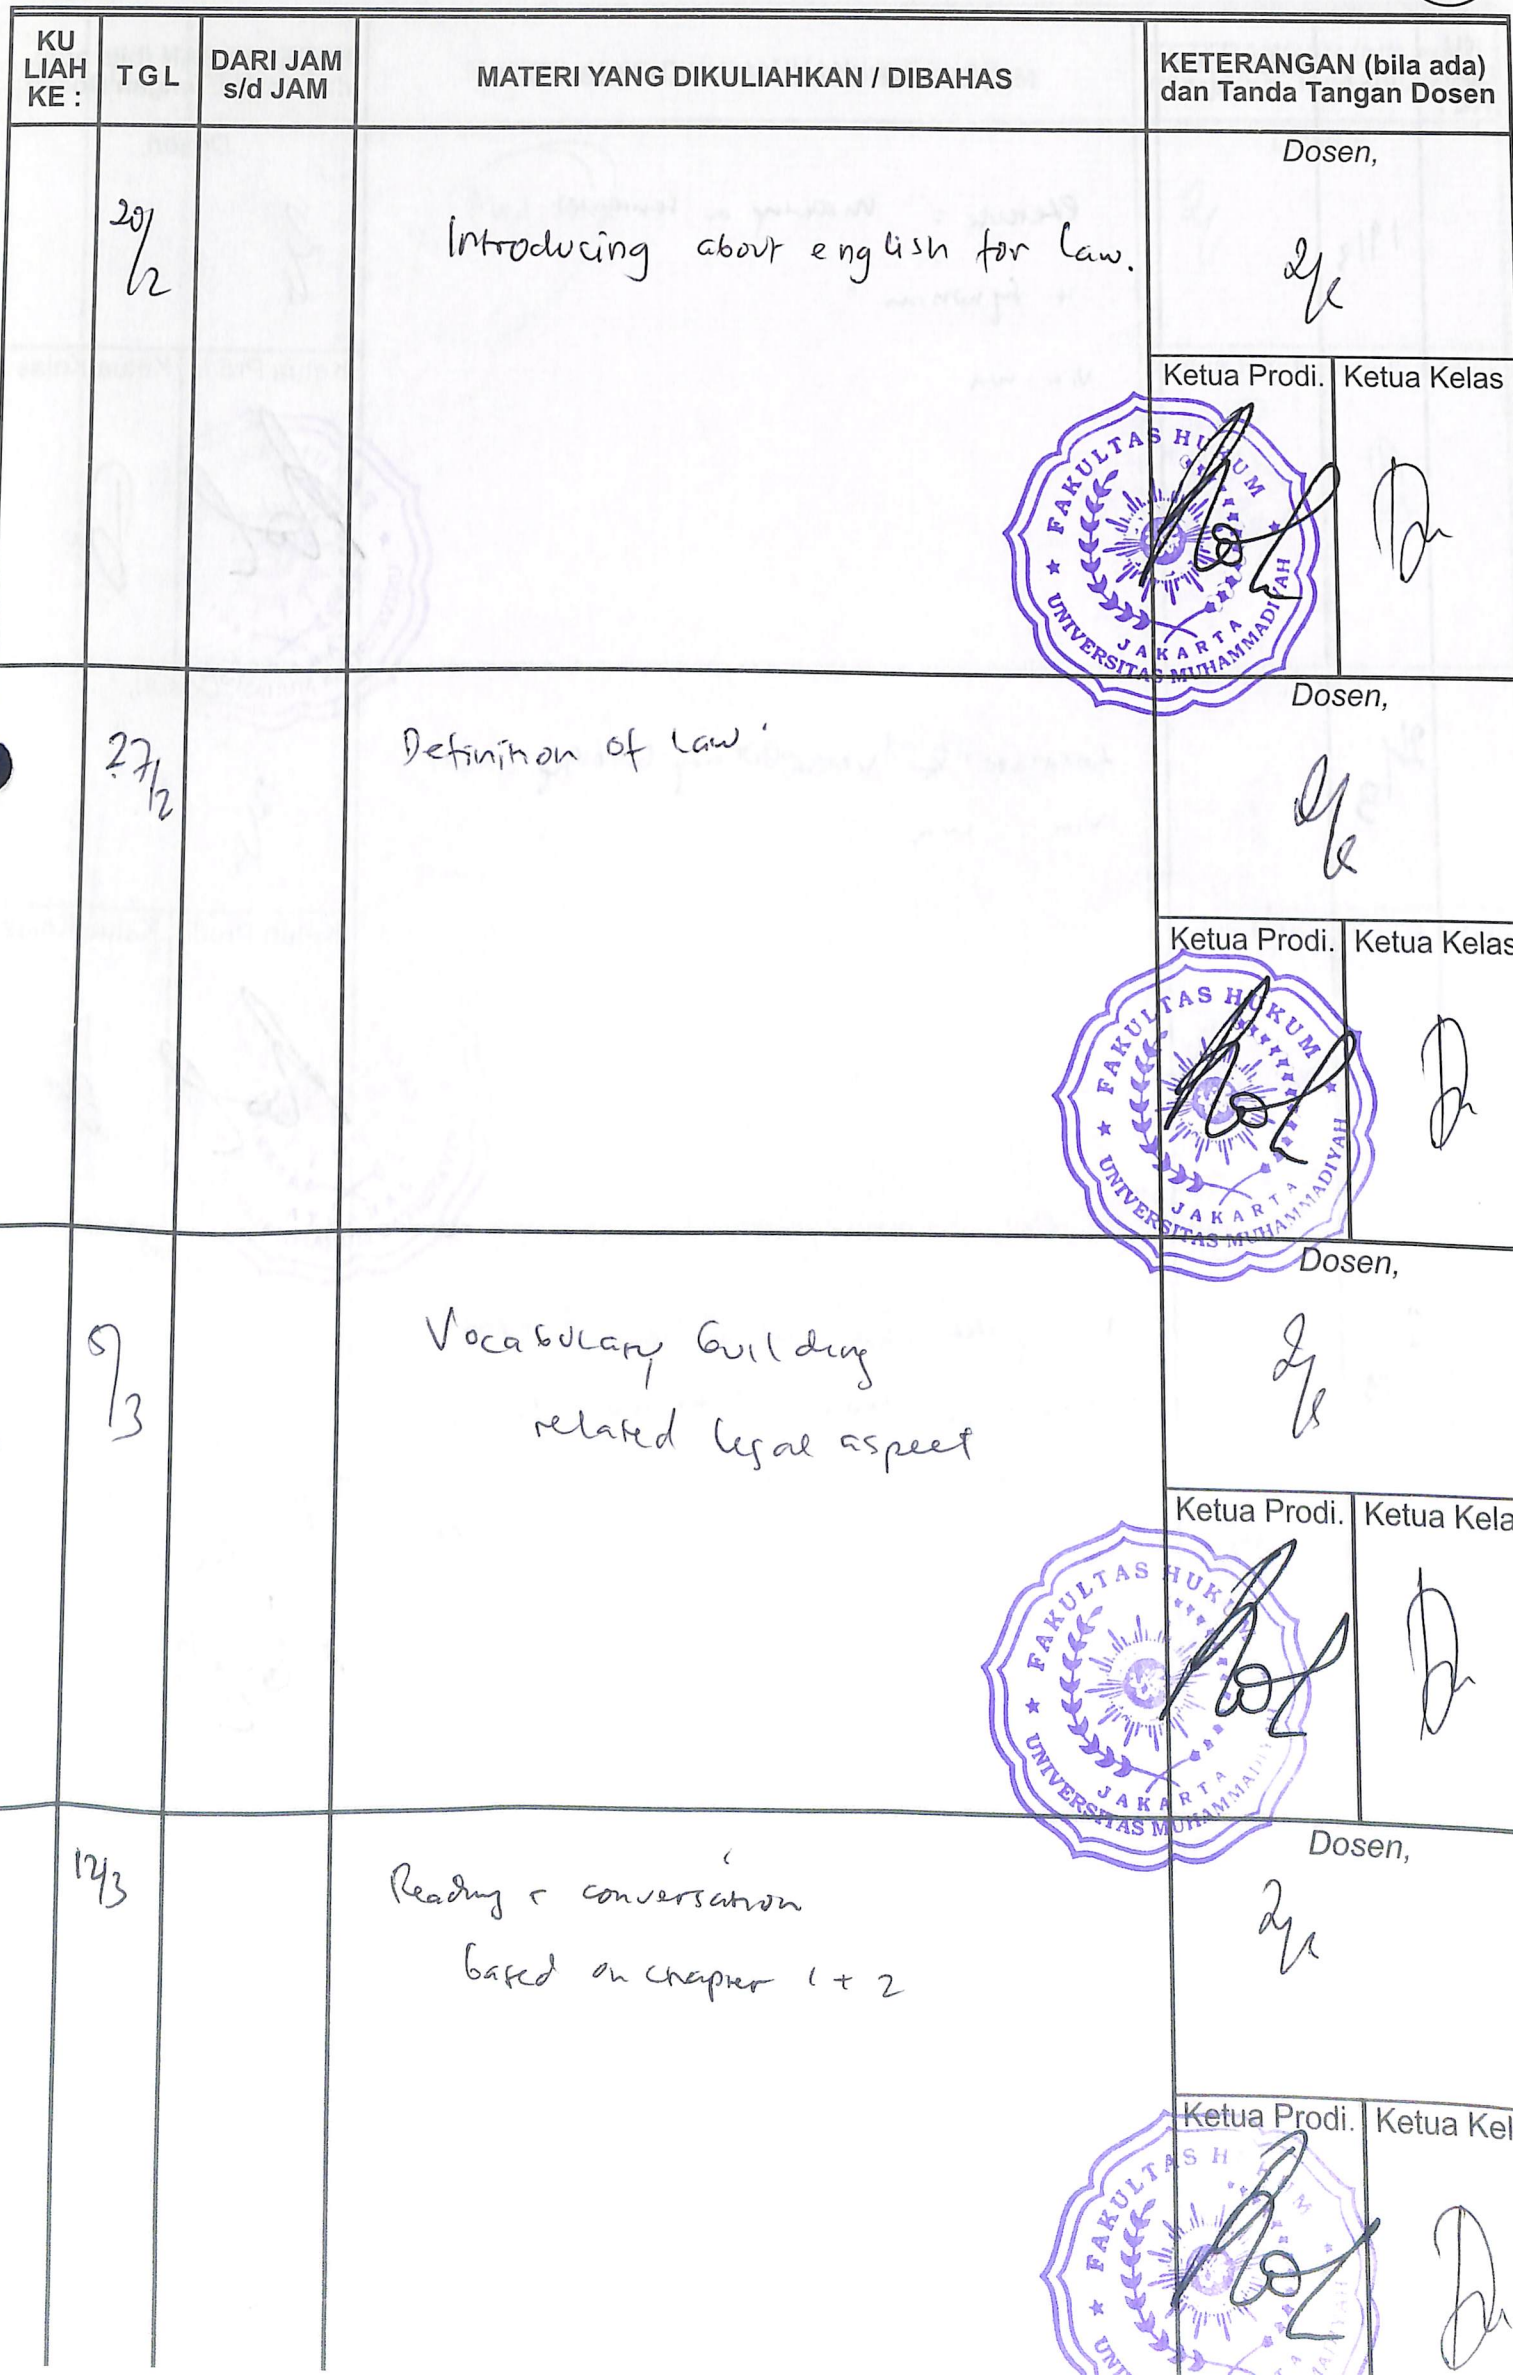 KU LIAH KE :
T G L
DARI JAM s/d JAM
MATERI YANG DIKULIAHKAN / DIBAHAS
KETERANGAN (bila ada) dan Tanda Tangan Dosen
Dosen,
20/2
Introducing about english for law.
Ketua Prodi. Ketua Kelas
FAKULTAS HUKUM
JAKARTA
UNIVERSITAS MUHAMMADIYAH
Dosen,
27/2
Definition of law
Ketua Prodi. Ketua Kelas
FAKULTAS HUKUM
JAKARTA
UNIVERSITAS MUHAMMADIYAH
Dosen,
5/3
Vocabulary building
related legal aspect
Ketua Prodi. Ketua Kela
FAKULTAS HUKUM
JAKARTA
UNIVERSITAS MUHAMMADIYAH
Dosen,
12/3
Reading & conversation
based on chapter 1 + 2
Ketua Prodi. Ketua Kel
FAKULTAS H KUM